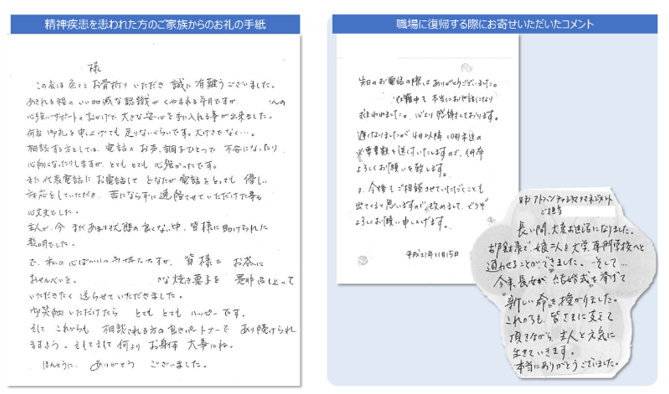 精神疾患を患われた方のご家族からのお礼の手紙
様
この度は色々とお骨折りいただき 誠に有難うございました。
心強いサポートのおかげで 大きな安心を手に入れる事が出来ました。
何回 御礼を申し上げても 足りないくらいです。大げさでなく…。
相談する方としては、電話の お声、調子ひとつで 不安になったり
心細くなったりしますが、とても とても 心強かったです。
また 代表電話に お電話して どなたが電話をとっても 優しい
対応をしていただき、苦にならずに 連絡させていただけた事も
大丈夫でした。
主人が、今 まだあまり状態の良くない中、皆様に助けられた
数ヶ月でした。
で、私の心ばかりの 皆様と お茶に
おせんべいと、 かな焼き菓子を 召し上って
いただきたく 送らせていただきました。
御笑納いただけたら とても とても ハッピーです。
そして これからも 相談される方の良きパートナーで あり続けられ
ますよう。そしてそして 何より お身体 大事にね。
ほんとうに ありがとう ございました。
職場に復帰する際にお寄せいただいたコメント
先日のお電話の際は ありがとうございました。
在職中も 本当にお世話になり
救われました。心より 感謝しております。
遅くなりましたが
よろしくお願いを致します。
又、今後もご相談させていただくことも
出てくると思いますので 改めまして、どうぞ
よろしくお願い申し上げます。
平成21年11月15日
ご担当
長い間、大変お世話になりました。
お陰様で、娘二人も大学、専門学校へと
通わせることができました。そして…
今年、長女が、結婚式を挙げて
"新しい命"を授かりました。
これからも、皆さまに支えて
頂きながら、主人と元気に
生きていきます。
本当にありがとうございました。